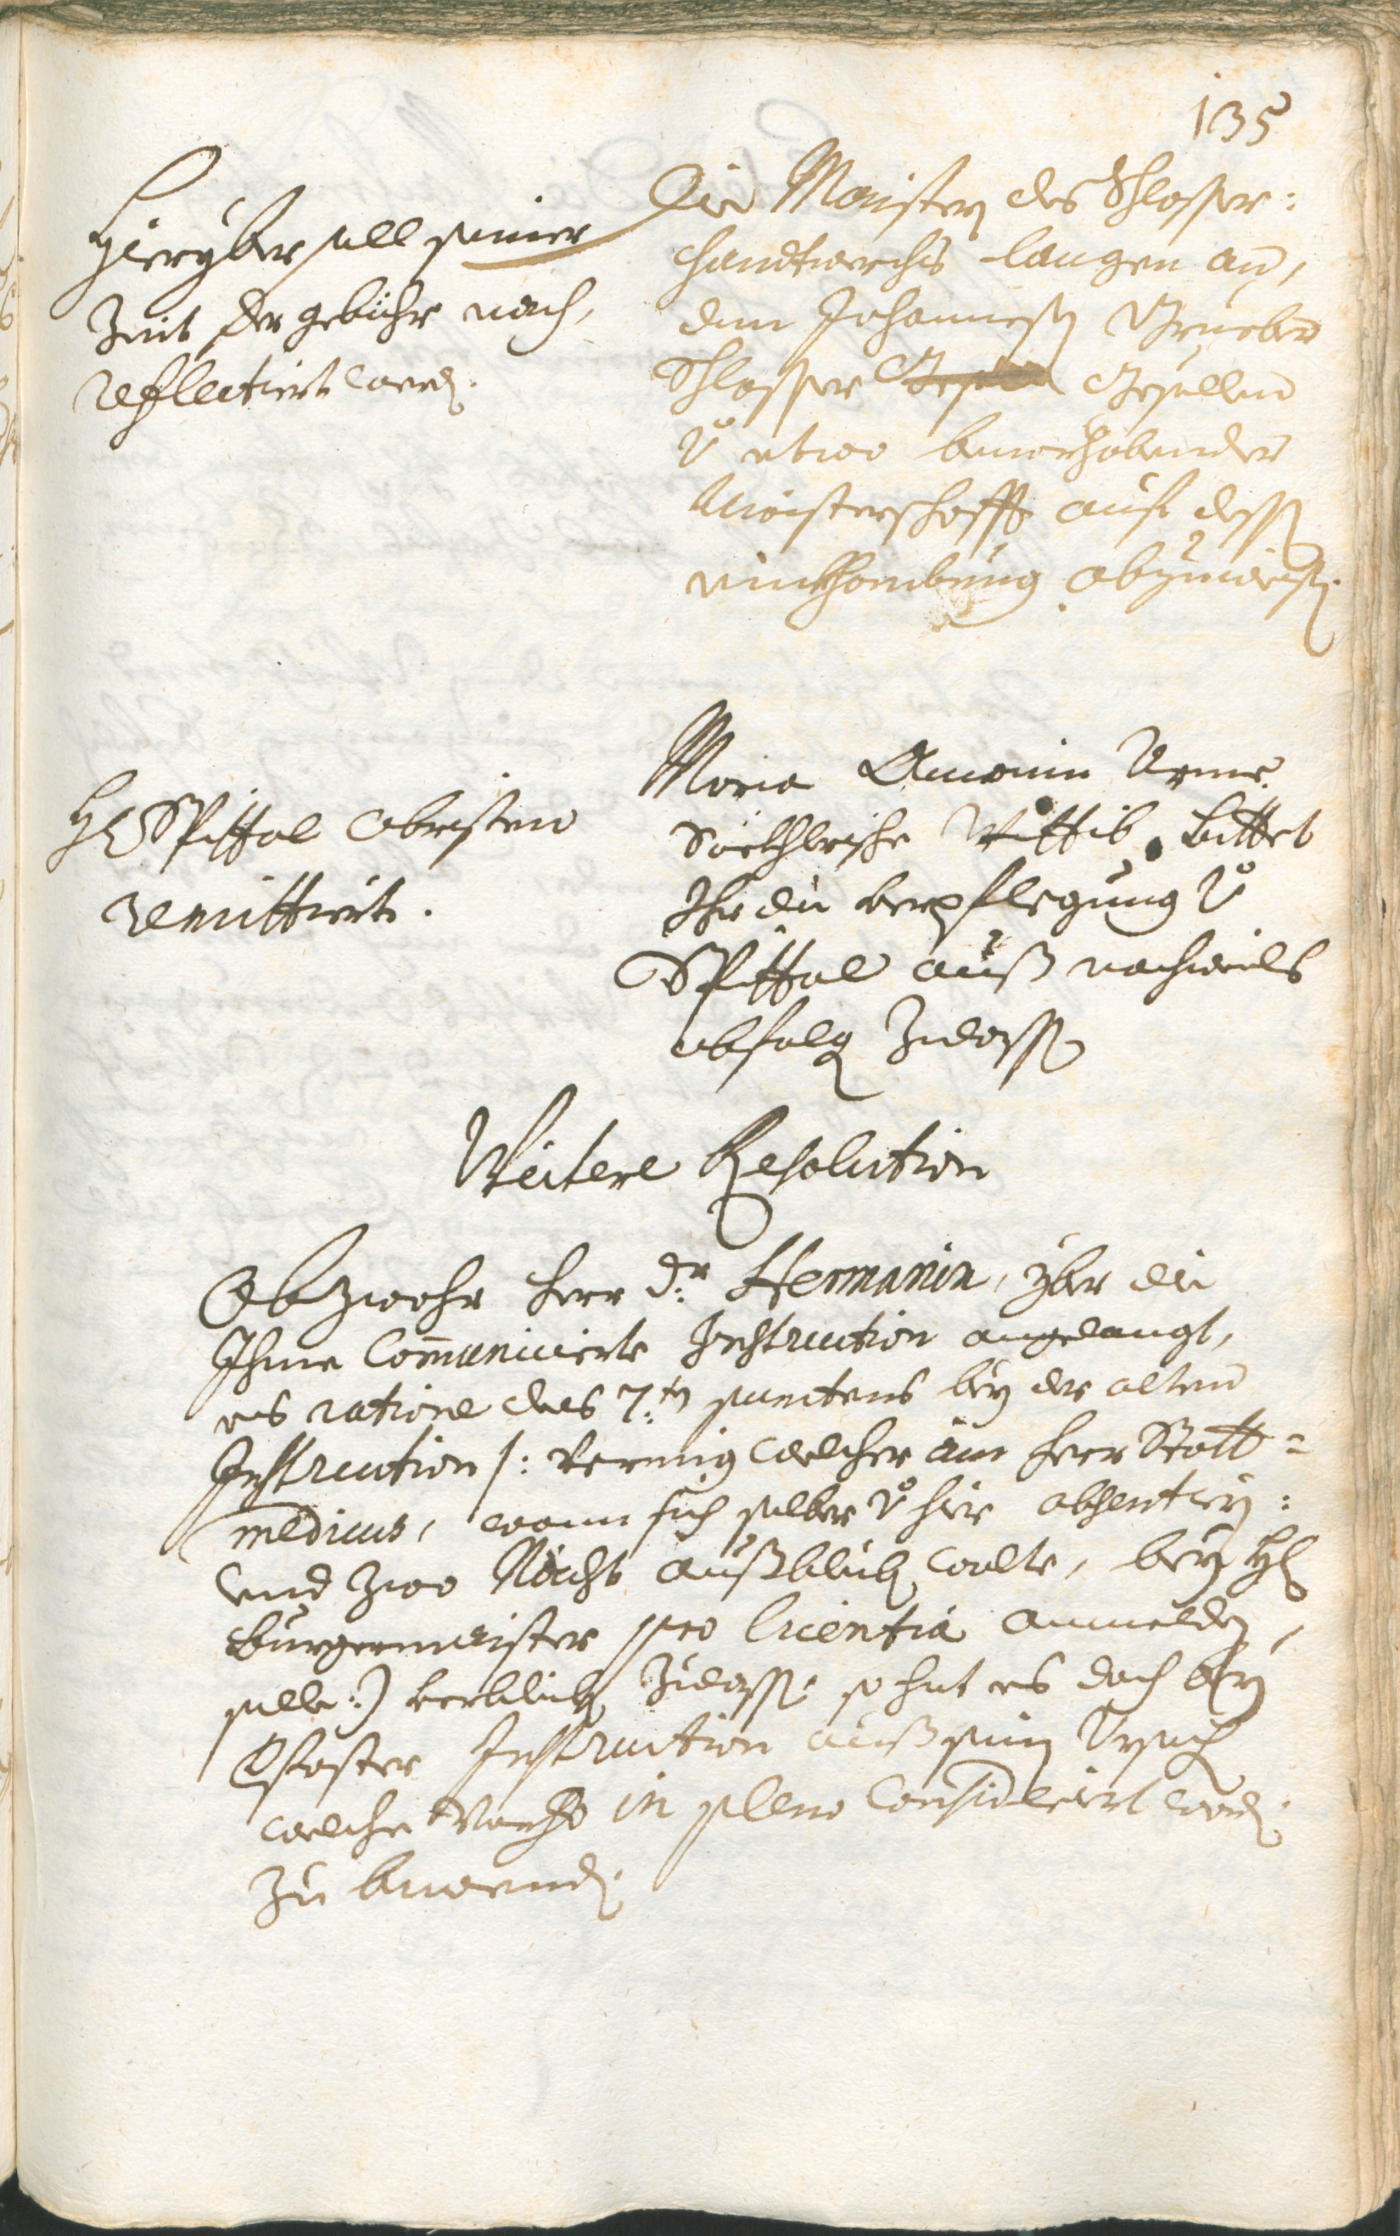 135
Hieryber soll seiner
Zeit der gebühr nach,
reflectiert werdn.
Die Maister des Schlosser:
handtwerchs langen an,
dem Johannesn Grueber
Schlosser Gesellen
v̊ etwo bevorhabender
Maisterschafft auf dessn
einkhombung abzuweisn.
Hl Spittal Obristen
remittiert.
Maria Amonin Arme
Wittib bittet
Ihr die verpflegung v̊
Spittal auß nachmals
abfolgn Zulassn
Weitere Resolution
Ob zwohr herr dr: Hermanin, yber die
Ihme Com̄unicierte Instruction angelangt,
es ratione des 7:tn punctens bey der alten
Instruction /: vermig welcher ein herr Statt=
medicus, wann sich selber v̊ hier absentiern:
und zwo Nächt außbleibn wolte, bey Hl
Burgermaister pro licentia anmeldn,
solle :/ verbleibn Zulassn. so hat es doch bey
Instruction auß sein Ursach
welche in pleno Consideriert wordn.
Zu bewendn.